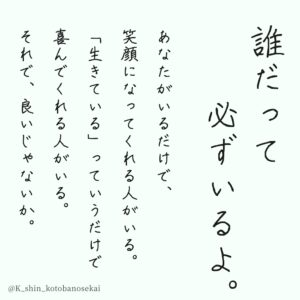 誰だって
必ずいるよ。
あなたがいるだけで、
笑顔になってくれる人がいる。
「生きている」っていうだけで
喜んでくれる人がいる。
それで、良いじゃないか。
@K_shin_kotobanosekai